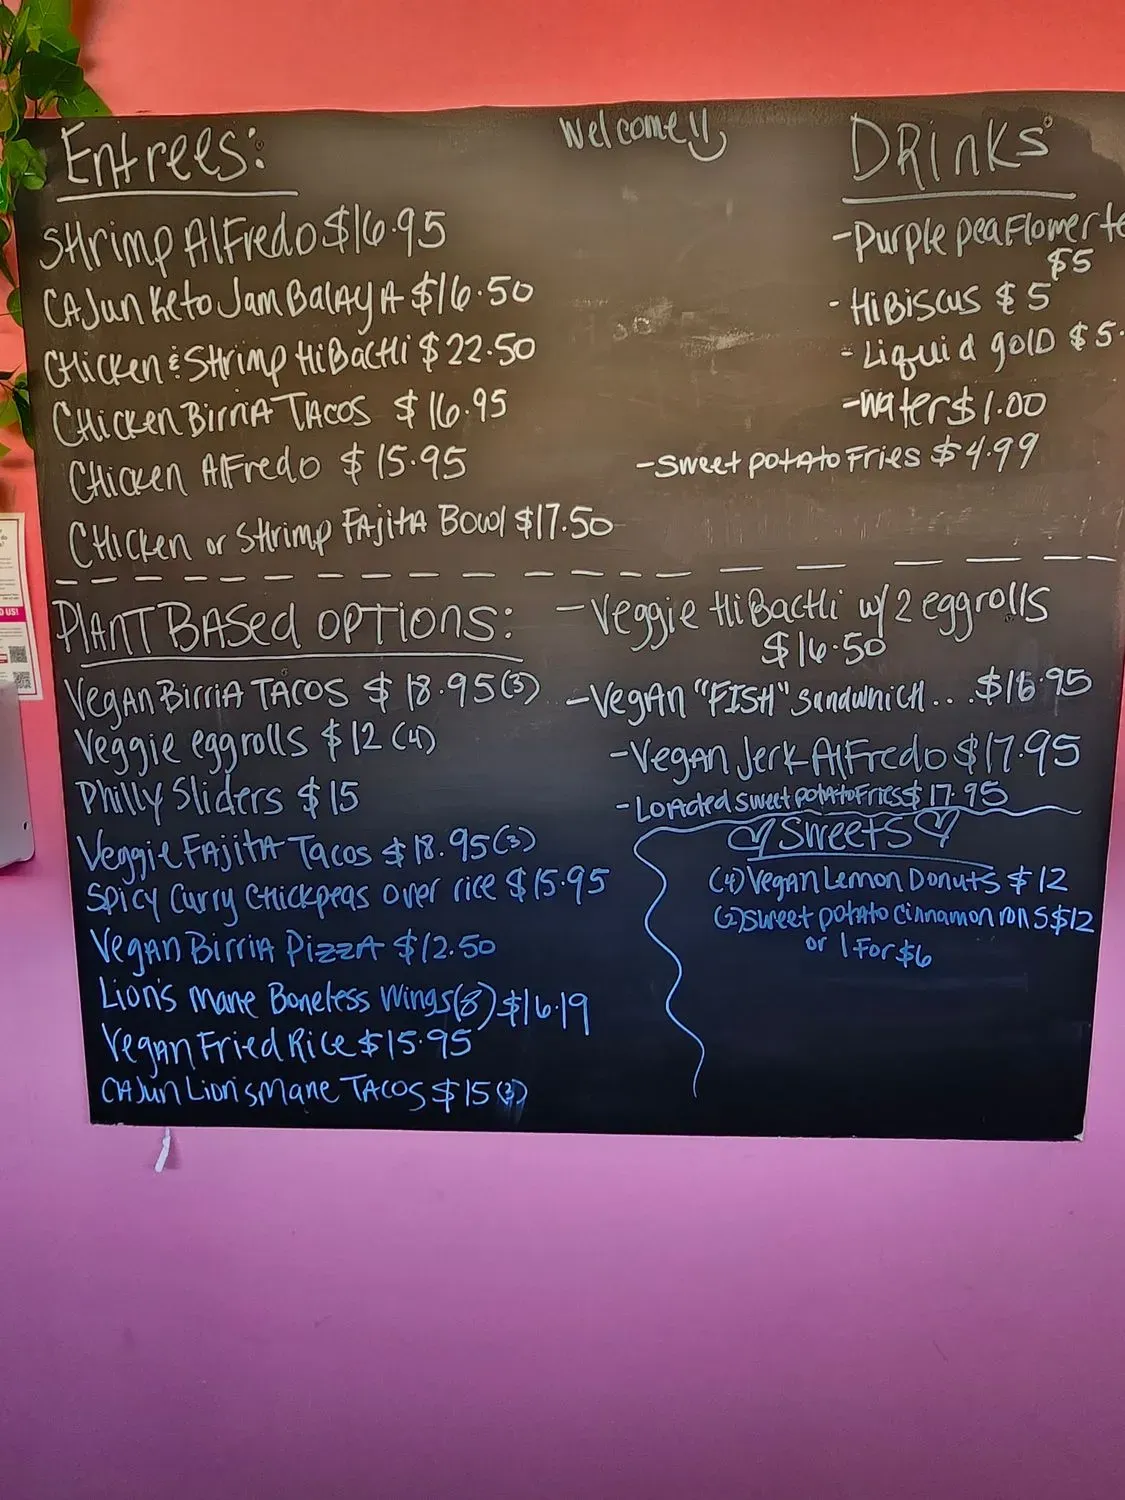 Entrees:
Shrimp Alfredo $16.95
Cajun Keto Jambalaya $16.50
Chicken & Shrimp Hibachi $22.50
Chicken Birria Tacos $16.95
Chicken Alfredo $15.95
Chicken or Shrimp Fajita Bowl $17.50
Welcome!!
DRINKS
-Purple pea Flower te
$5
-Hibiscus $5
-Liquid gold $5.
-Water $1.00
-Sweet potato Fries $4.99
Plant Based options:
Vegan Birria Tacos $18.95(3)
Veggie eggrolls $12(4)
Philly Sliders $15
Veggie Fajita Tacos $18.95(3)
Spicy Curry Chickpeas over rice $15.95
Vegan Birria Pizza $12.50
Lion's Mane Boneless Wings(8) $16.19
Vegan Fried Rice $15.95
Cajun Lion's Mane Tacos $15(3)
-Veggie Hibachi w/2 eggrolls
$16.50
-Vegan "FISH" Sandwhich... $16.95
-Vegan Jerk Alfredo $17.95
-Loaded sweet potato Fries $17.95
Sweets
(4) Vegan Lemon Donuts $12
(2) Sweet potato Cinnamon rolls $12
or 1 For $6